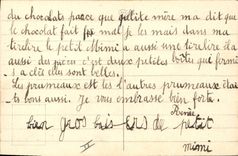 du chocolats parce que petite mère ma dit que
le chocolat fait mal je les mais dans ma
tirelire le petit Mimi a aussi une tirelire il a
aussi des pièces c'est deux petites boîtes que ferme
a clés elles sont belles.
Les prumeaux est les autres prumeaux étai
ts bons aussi. Je vous embrasse bien forte.
Renée
bien gros bais de petit
mimi